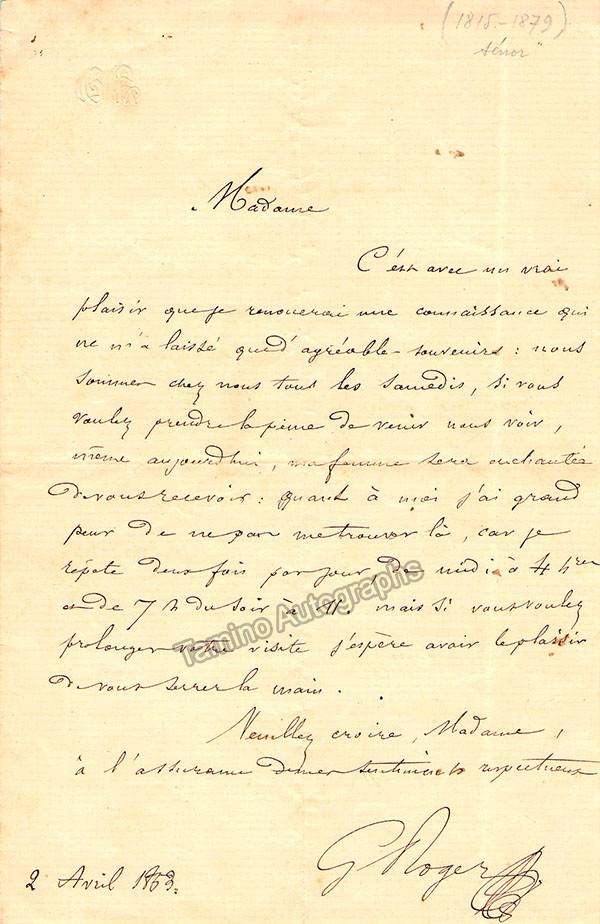 (1815-1879)
ténor
Madame
C'est avec un vrai
plaisir que je renouerai une connaissance qui
ne m'a laissé que d'agréables souvenirs : nous
sommes chez nous tous les samedis, si vous
voulez prendre la peine de venir nous voir,
même aujourd'hui, ma femme sera enchantée
de vous recevoir : quant à moi j'ai grand
peur de ne pas me trouver là, car je
répète deux fois par jour, de midi à 4 hres
et de 7 h du soir à 11. mais si vous voulez
prolonger votre visite j'espère avoir le plaisir
de vous serrer la main.
Veuillez croire, Madame,
à l'assurance de mes sentiments respectueux
G Roger
2 Avril 1863.
Tamino Autographs